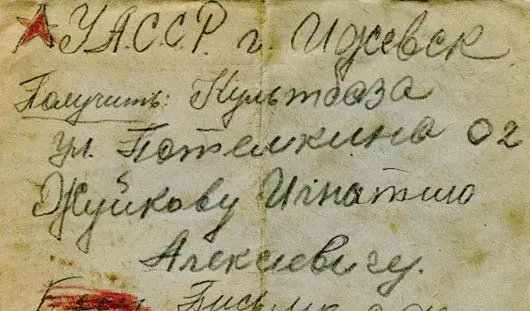 У.А.С.С.Р. г. Ижевск
Получить: Культбаза
ул. Потемкина 02
Жуйкову Игнатию
Алексиевичу.
Письмо